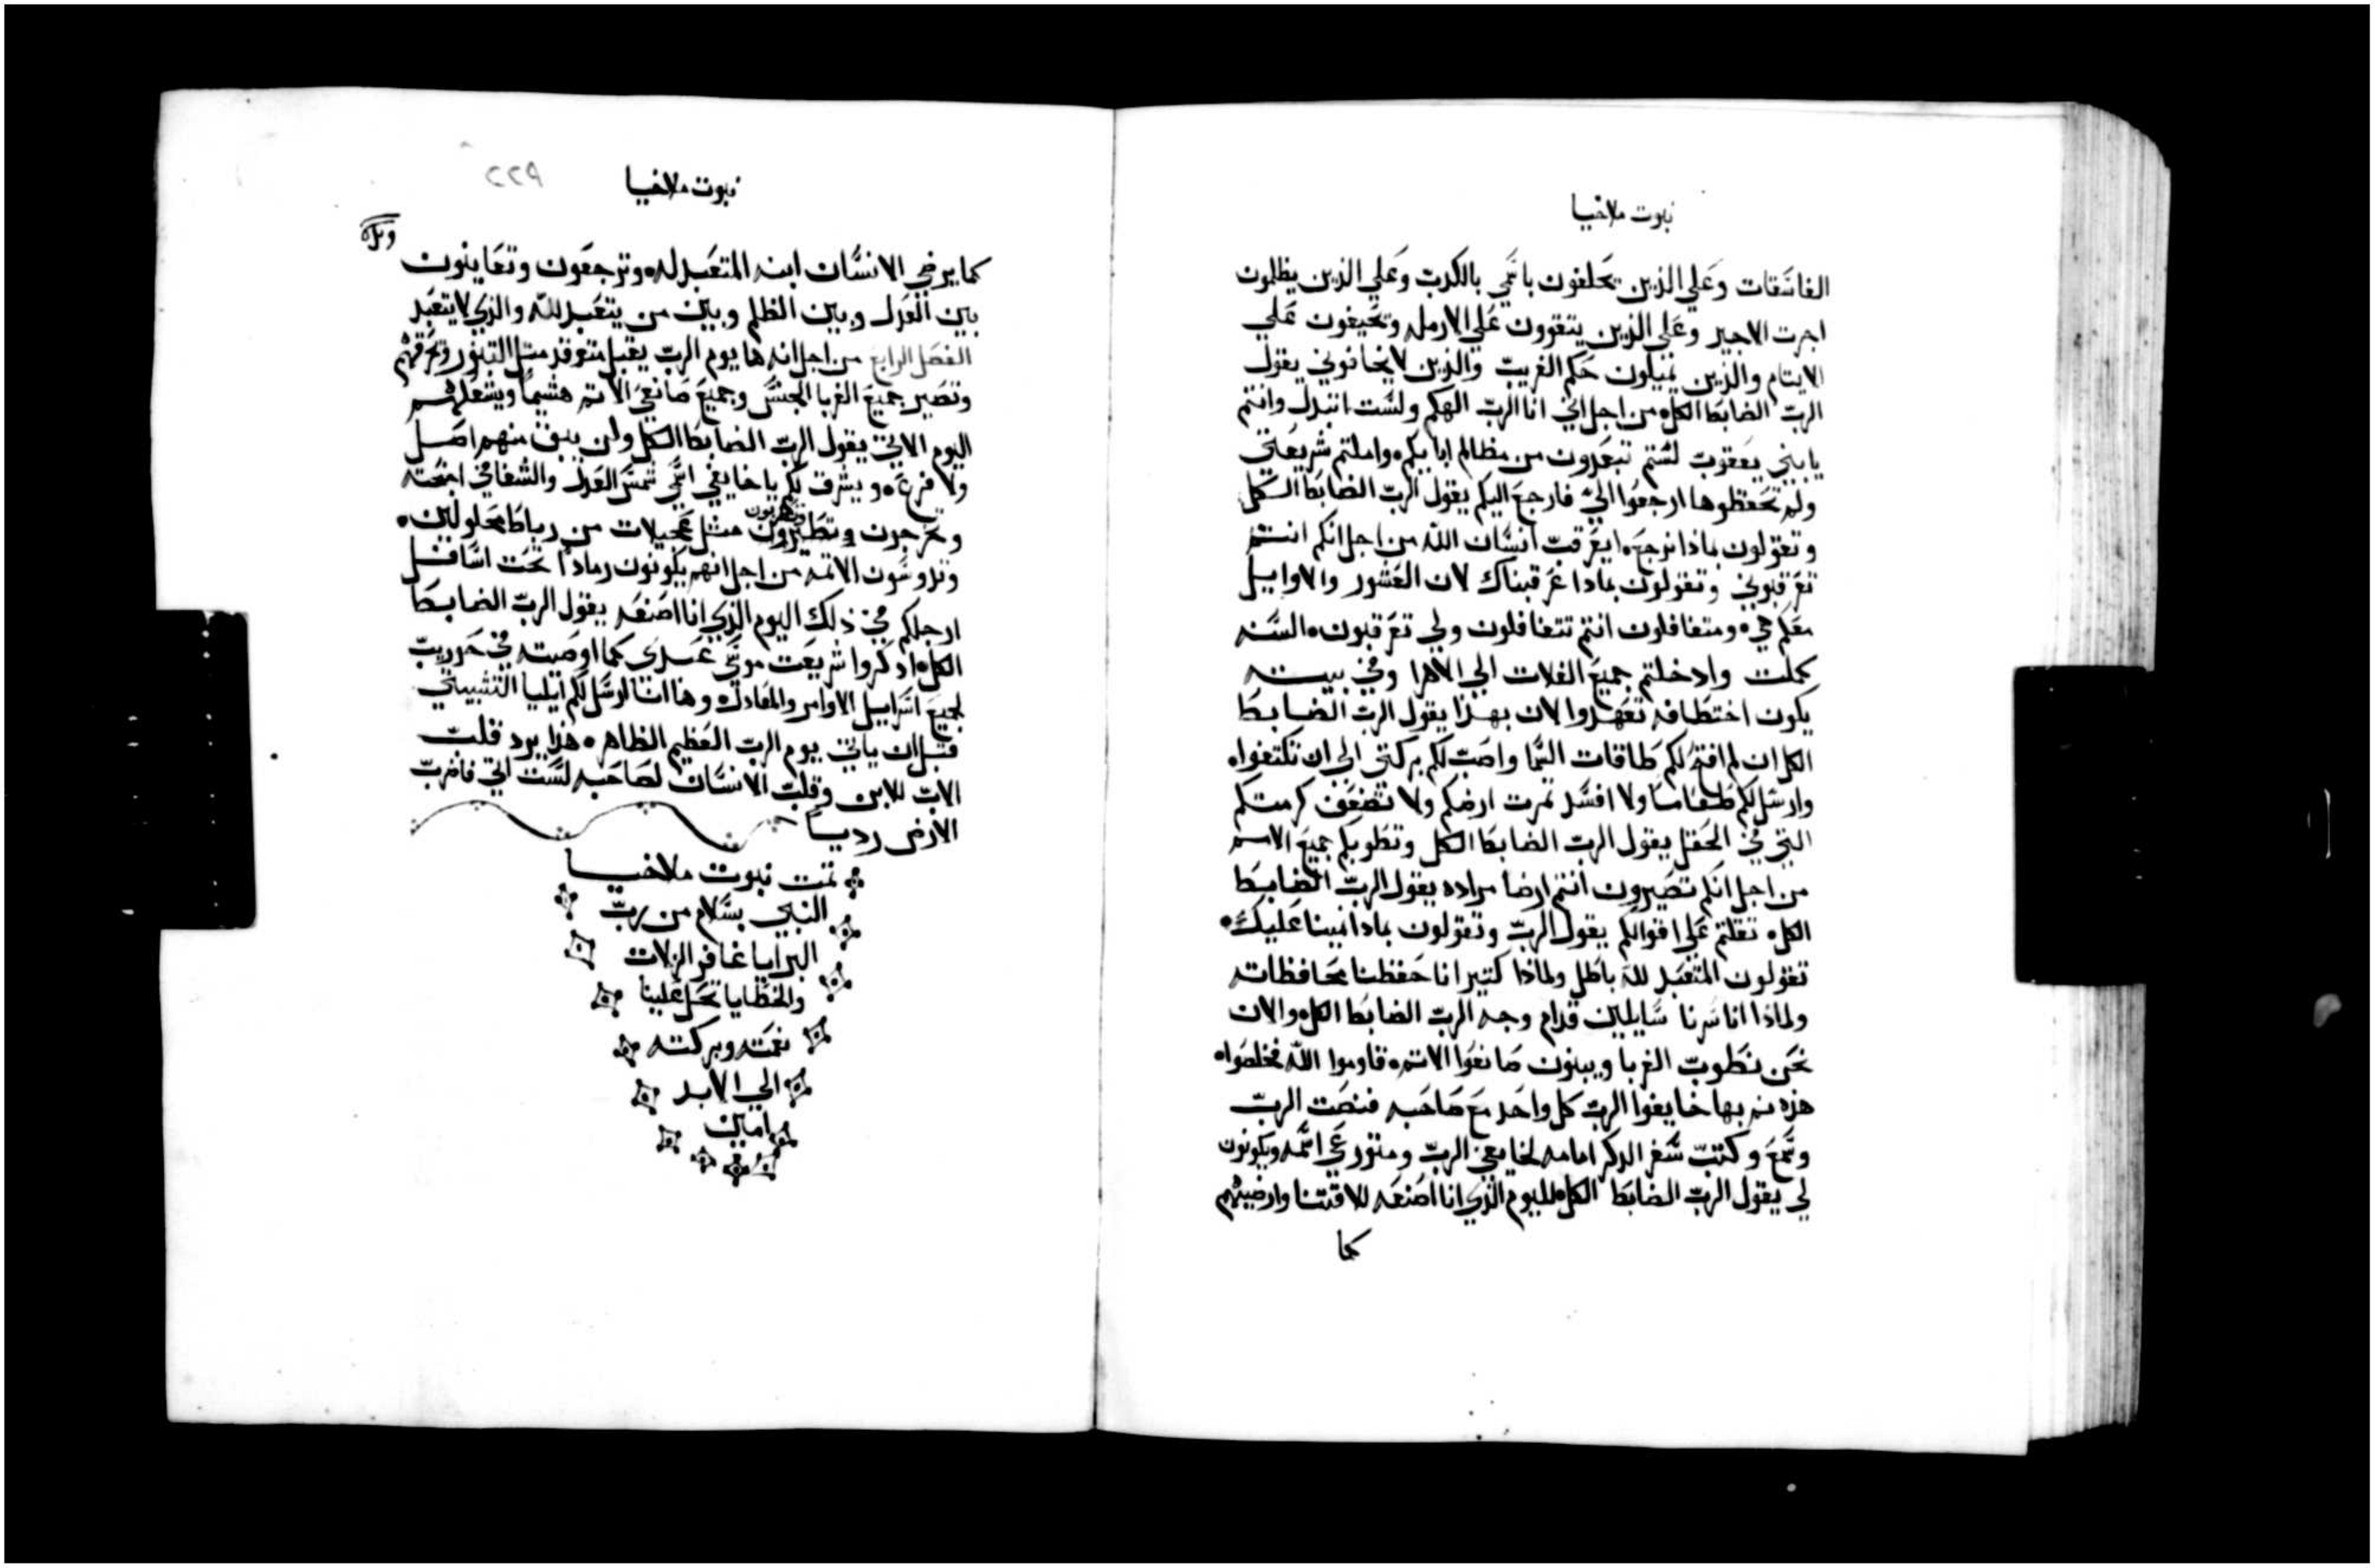 نبوت ملاخيا
الفاسقات وعلي الذين يحلفون باسمي بالكدب وعلي الذين يظلمون
اجرت الاجير وعلي الذين يتقوون علي الارمله ويحيفون علي
الايتام والذين يميلون حكم الغريب والذين لا يخافوني يقول
الرب الضابط الكل من اجل اني انا الرب الهكم ولست اتبدل وانتم
يابني يعقوب لستم تبعدون من مظالم ابايكم واملتم شريعتي
ولم تحفظوها ارجعوا الي فارجع اليكم يقول الرب الضابط الكل
وتقولون بماذا نرجع ايعرقب انسان الله من اجل انكم انتم
تعرقبوني وتقولون بمادا عرقبناك لان العشور والاوايل
معكم هي ومتغافلون انتم تتغافلون ولي تعرقبون السنه
كملت وادخلتم جميع الغلات الي الاهرا وفي بيته
يكون اختطافه تعهدوا الان بهذا يقول الرب الضابط
الكل ان لم افتح لكم طاقات السما واصب لكم بركتي الي ان تكتفوا
وارسل لكم طعاما ولا افسد تمرت ارضكم ولا تضعف كرمتكم
التي في الحقل يقول الرب الضابط الكل وتطوبكم جميع الامم
من اجل انكم تصيرون انتم ارضا مراده يقول الرب الضابط
الكل تقلتم علي اقوالكم يقول الرب وتقولون بمادا نمينا عليك
تقولون المتعبد لله باطل ولماذا كتير انا حفظنا محافظاته
ولماذا اناسرنا سايلين قدام وجه الرب الضابط الكل والان
نحن نطوب الغربا ويبنون صانعوا الاتم قاوموا الله فخلصوا
هذه نم بها خايفوا الرب كل واحد مع صاحبه فنصت الرب
وسمع وكتب سفر الدكر امامه لخايفي الرب ومتورعي اسمه ويكونون
لي يقول الرب الضابط الكل لليوم الذي انا اصنعه للاقتنا وارضيهم
كما
نبوت ملاخيا
٢٢٩
كما يرضي الانسان ابنه المتعبد له وترجعون وتعاينون
بين العدل وبين الظلم وبين من يتعبد لله والذي لا يتعبد
الفصل الرابع من اجل انه ها يوم الرب يقبل متوقد متل التنور وتحرقهم
وتصير جميع الغربا الجنس وجميع صانعي الاتم هشيما ويشعلهم
اليوم الاتي يقول الرب الضابط الكل ولن يبق منهم اصل
ولا فرع ويشرق لكم يا خايفي اسمي شمس العدل والشفا في اجنحته
وتخرجون وتطفرون مثل عجيلات من رباط محلولين
وتدوسون الاتمه من اجل انهم يكونون رمادا تحت اسافل
ارجلكم في ذلك اليوم الذي انا اصنعه يقول الرب الضابط
الكل ادكروا شريعت موسي عبدي كما اوصيته في حوريب
لجميع اسراييل الاوامر والمعادل وها انا ارسل لكم ايليا التشبيتي
قبل ان ياتي يوم الرب العظيم الظاهر هذا يرد قلب
الاب للابن وقلب الانسان لصاحبه لست اتي فاضرب
الارض رديا
تمت نبوت ملاخيا
النبي بسلام من رب
البرايا غافر الزلات
والخطايا تحل علينا
نعمته وبركته
الي الابد
امين